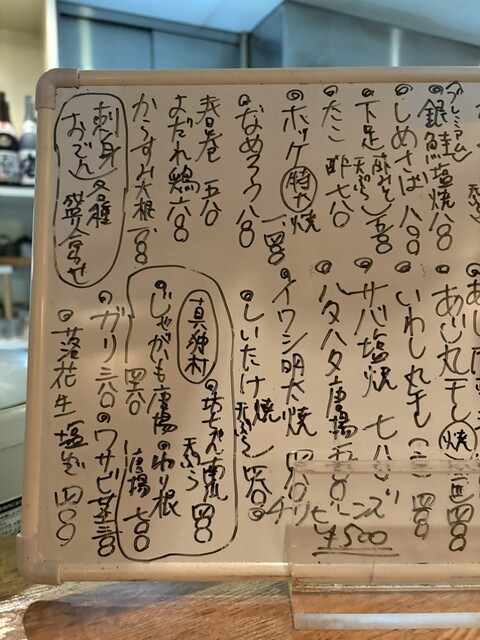 プレミアム
銀鮭魚塩焼 八〇〇
しめさば 八〇〇
下足 酢みそ 天ぷら 五〇〇
たこ 酢 七八〇
ホッケ 特大 焼 一、四〇〇
なめろう 八〇〇
春巻 五〇〇
よだれ鶏 六〇〇
からすみ大根 一、八〇〇
刺身 各種
おでん 盛り合わせ
あじ丸干し 焼
いわし丸干し(二) 四〇〇
サバ塩焼 七八〇
ハタハタ唐揚
イワシ明太焼 四八〇
しいたけ 焼 天ぷら 四八〇
チリビーンズ
¥500
真狩村
坊ちゃん南瓜 天ぷら 四〇〇
じゃがも唐揚 四六〇
わり根 唐揚 七〇〇
ガリ 三六〇
ワサビ茎 三〇〇
落花生 塩ゆで 四〇〇